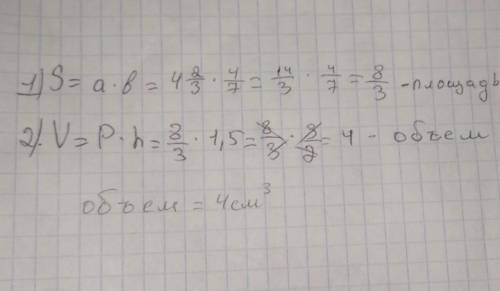 1) S = a · b = 4 2/3 · 4/7 = 14/3 · 4/7 = 8/3 - площадь
2). V = P · h = 8/3 · 1,5 = 8/3 · 3/2 = 4 - объем
объем = 4 см³